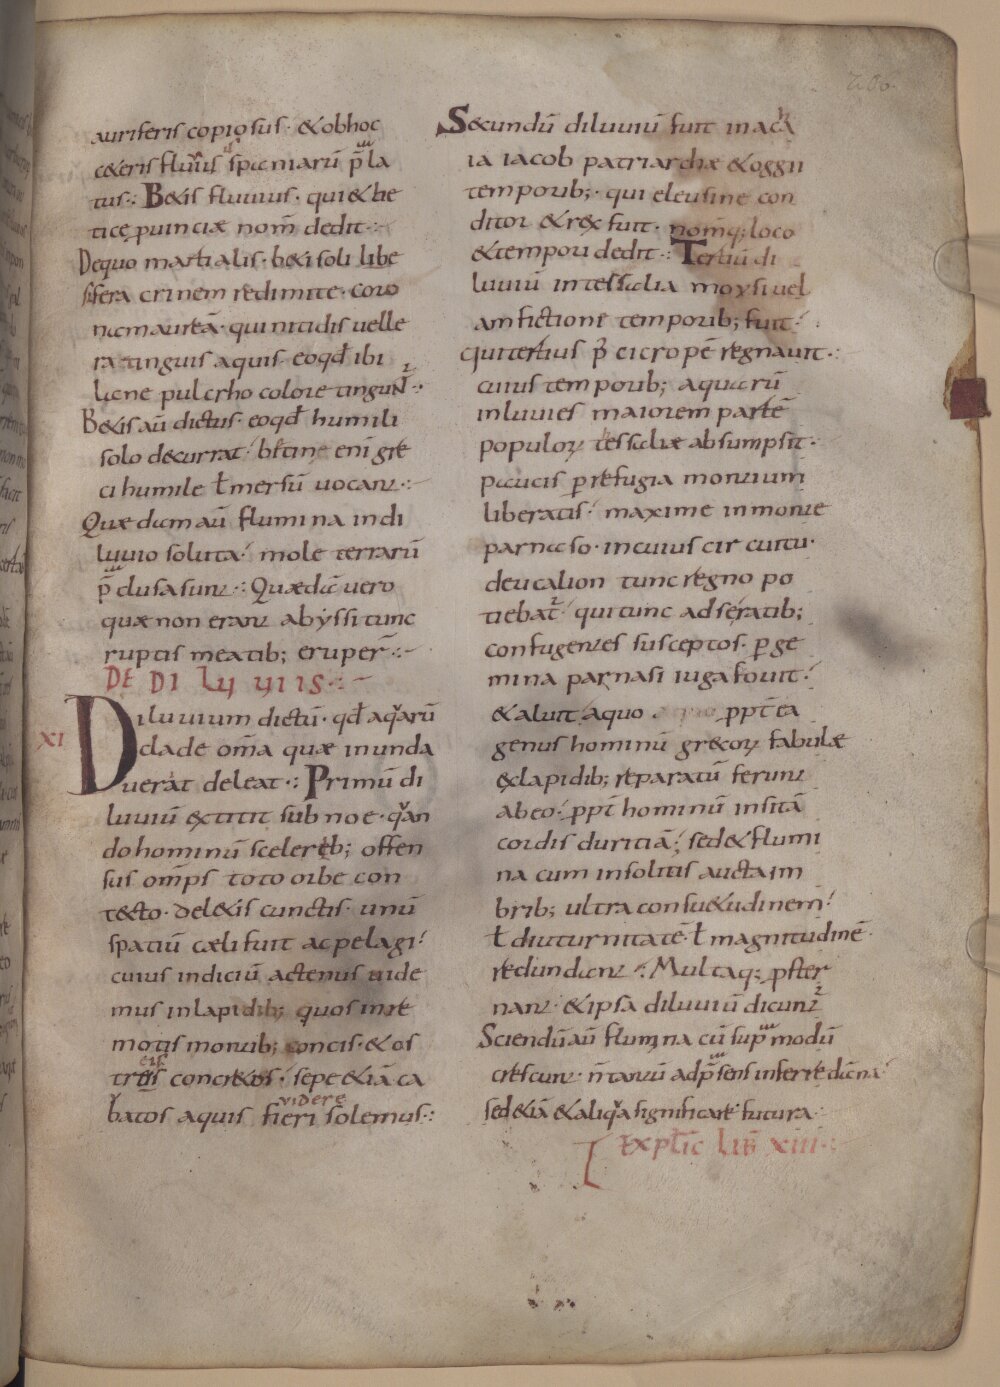 auriferis copiosus· & obhoc
c&eris fluuiis hispaniarū p̄la
tus·: B&is fluuius· qui & be
ticę prouinciæ nom̄ dedit·:
De quo martialis· b&i soli libe
sifera crinem redimite· coro
nam aureā· qui nitidis uelle
ra tinguis aquis· eoqd̄ ibi
lane pulcrho colore tinguNt̄·:
B&is aū dictus· eoqd̄ humili
solo decurrat· b&ine enī gre
ci humile ł mersū uocant·:
Quædam aū flumina in di
luuio soluta· mole terrarū
p̄clusa sunt·: Quædā uero
quæ non erant abyssi tunc
ruptis meatib; eruper̄·:
DE DILUUIIS·:
XI
Diluuium dictū· qd̄ aqͣarū
clade om̄a quæ inunda
uerat deleat·: Primū di
luuiū extitit sub noe· qͣan
do hominū scelereb; offen
sus om̄ps toto orbe con
tecto· del&is cunctis· unū
spatiū cæli fuit ac pelagi·
cuius indiciū actenus uide
mus in lapidib; quos in re
motis montib; concis· & os
eis
triis concr&os· sepe & iā ca
videre
uͣatos aquis fieri solemus·:
Secundū diluuiū fuit in acͣa
ia iacob patriarchæ & oggii
temporib;· qui eleusine con
ditor & rex fuit· nomq; loco
& tempori dedit·: Tertiū di
luuiū in tessalia moysi uel
amfictioni temporib; fuit·
qui tertius p̄ cicropē regnauit·:
cuius temporib; aquarū
inluuies maiorem partē
populoꝝ tessaliæ absumpsit·
paucis ꝑ refugia montium
liberatis· maxime in monte
parnaso· in cuius circuitu·
deucalion tunc regno po
tiebat̄· qui tunc ad se ratib;
confugentes susceptos· ꝑ ge
mina parnasi iuga fouit·
& aluit aquo ꝓpt̄ ea
genus hominū grecoꝝ fabulæ
& lapidib; reparatū ferunt
ab eo· ꝓpt̄ hominū insitā
cordis duritiā· sed & flumi
na cum insolitis aucta im
brib; ultra consu&udinem·
ł diuturnitatē· ł magnitudinē·
redundant·: Multaq; ꝓster
nant· & ipsa diluuiū dicunt̄
Sciendū aū flumina cū supͣ modū
crescunt· n̄ tantū ad p̄sens inferre dāna
sed & iā & aliqͣa significare futura·
Explic̄ Lib̄ xiii·: